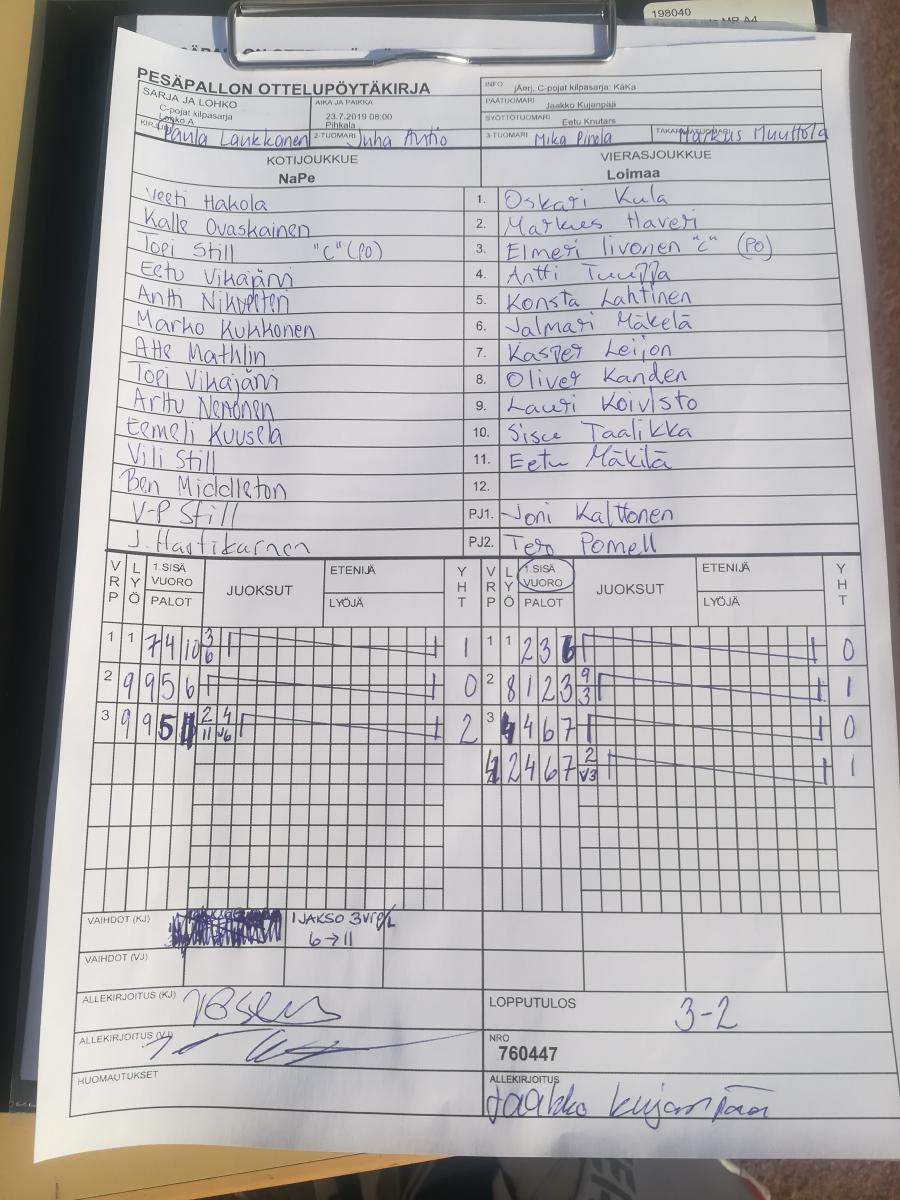 198040
PESÄPALLON OTTELUPÖYTÄKIRJA
SARJA JA LOHKO
C-pojat kilpasarja
Lohko A
AIKA JA PAIKKA
23.7.2019 08:00
Pihkala
INFO jÄärj. C-pojat kilpasarja: KäKa
PÄÄTUOMARI Jaakko Kujanpää
SYÖTTÖTUOMARI Eetu Knuters
KIRJURI Paula Laukkanen 2-TUOMARI Juha Antio 3-TUOMARI Mika Pinola TAKARAJATUOMARI Markus Muuttola
KOTIJOUKKUE VIERASJOUKKUE
NaPe Loimaa
Veeti Hakola 1. Oskari Kula
Kalle Ovaskainen 2. Markus Haveri
Topi Still "C" (PO) 3. Elmeri Iivonen "C" (PO)
Eetu Vikajärvi 4. Antti
Antti 5. Konsta Lahtinen
Marko Kukkonen 6. Jalmari Mäkelä
Atte Mathlin 7. Kasper Leijon
Topi Vikajärvi 8. Oliver Kanden
Arttu Nenonen 9. Lauri Koivisto
Eemeli Kuusela 10. Sisu Taalikka
Vili Still 11. Eetu Mäkilä
Ben Middleton 12.
V-P Still PJ1. Joni Kalttonen
J. Hartikainen PJ2. Tero Pomell
VRP LYÖ 1.SISÄ VUORO PALOT JUOKSUT ETENIJÄ LYÖJÄ YHT VRP LYÖ 1.SISÄ VUORO PALOT JUOKSUT ETENIJÄ LYÖJÄ YHT
1 1 7 4 10 3 6 1 1 1 2 3 6 0
2 9 9 5 6 0 2 8 1 2 3 9 3 1
3 9 9 5 2 11 4 V6 2 3 4 4 6 7 0
4 2 4 6 7 2 V3 1
VAIHDOT (KJ) 1 JAKSO 3 vrp/L
6→11
VAIHDOT (VJ)
ALLEKIRJOITUS (KJ) LOPPUTULOS 3-2
ALLEKIRJOITUS (VJ) NRO
760447
HUOMAUTUKSET ALLEKIRJOITUS
Jaakko Kujanpää